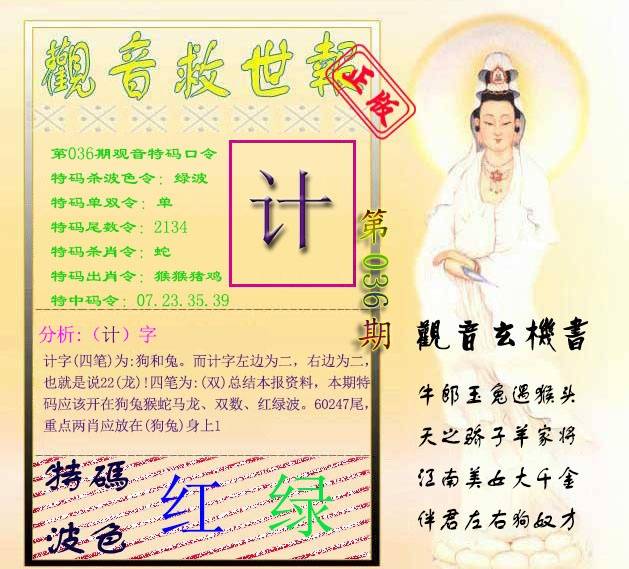 觀音救世報
正版
第036期观音特码口令
特码杀波色令：绿波
特码单双令：单
特码尾数令：2134
特码杀肖令：蛇
特码出肖令：猴猴猪鸡
特中码令：07.23.35.39
计
第036期
分析:（计）字
计字(四笔)为:狗和兔。而计字左边为二，右边为二，
也就是说22(龙)!四笔为:(双)总结本报资料，本期特
码应该开在狗兔猴蛇马龙、双数、红绿波。60247尾，
重点两肖应放在(狗兔)身上1
特碼
波色
红 绿
觀音玄機書
牛郎玉兔遇猴头
天之骄子羊家将
江南美女大千金
伴君左右狗奴才